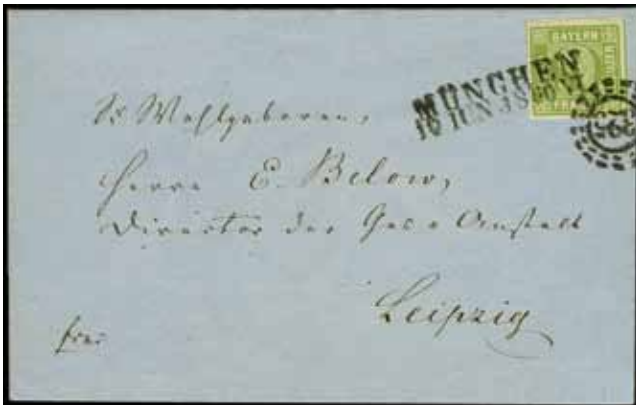 BAYERN
MÜNCHEN
FR
Sr Wohlgeboren,
Herrn E. Below,
Director der Gas-Anstalt
Leipzig
frei